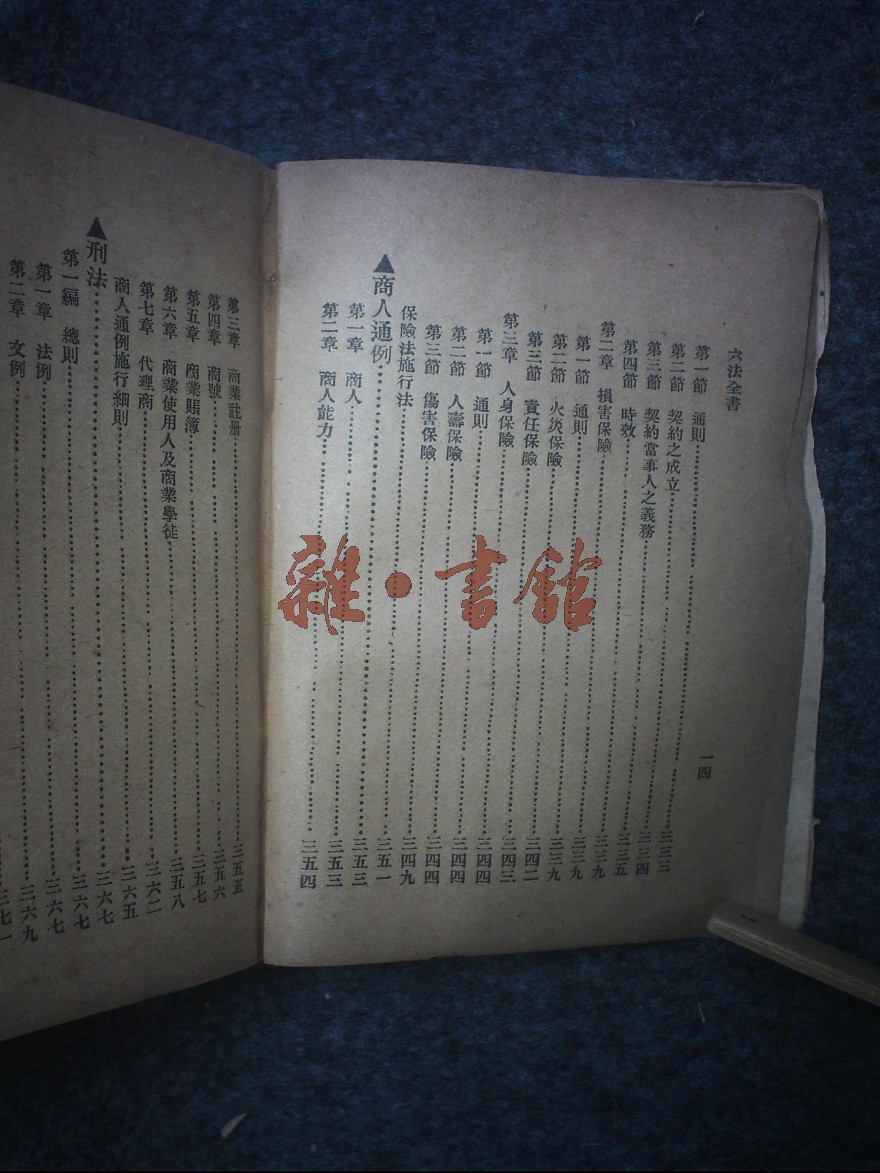 六法全書
一四
第一節 通則……三三三
第二節 契約之成立……三三四
第三節 契約當事人之義務……三三五
第四節 時效……三三九
第二章 損害保險……三三九
第一節 通則……三三九
第二節 火災保險……三四二
第三節 責任保險……三四三
第三章 人身保險……三四四
第一節 通則……三四四
第二節 人壽保險……三四四
第三節 傷害保險……三四九
保險法施行法……三五一
▲商人通例……三五三
第一章 商人……三五三
第二章 商人能力……三五四
第三章 商業註册……三五五
第四章 商號……三五六
第五章 商業賬簿……三五七
第六章 商業使用人及商業學徒……三五八
第七章 代理商……三六二
商人通例施行細則……三六五
▲刑法……三六七
第一編 總則……三六七
第一章 法例……三六七
第二章 文例……三六九
三七一
雜·書館